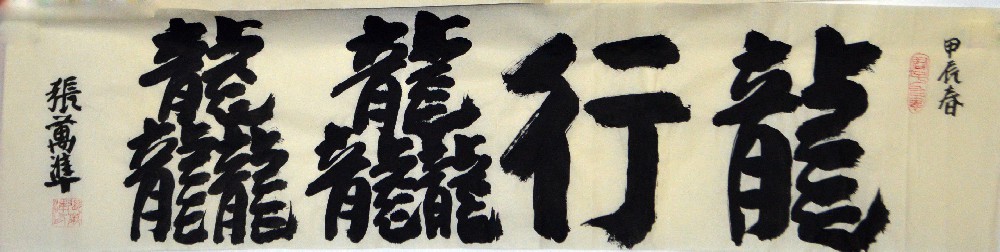 甲辰春
龍行龘龘
張萬準